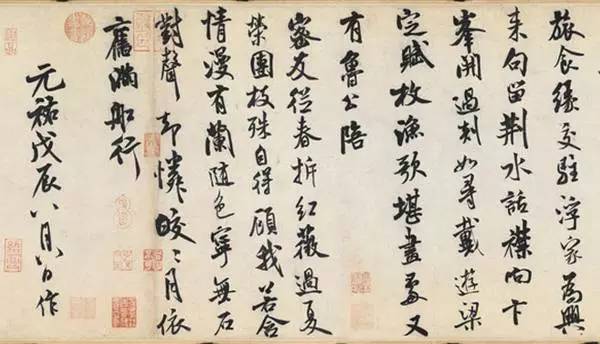 旅食緣交駐浮家為興
来句留荆水話襟向卞
峯開過剡如尋戴遊梁
定賦枚漁歌堪畫處又
有魯公陪
密友從春拆紅薇過夏
榮團枝殊自得顧我若含
情漫有蘭隨色寧無石
對聲却憐皎〻月依
舊滿船行
元祐戊辰八月八日作